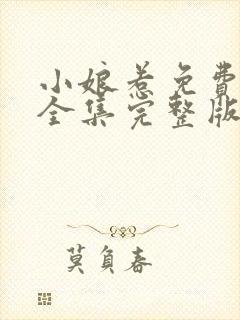 小娘惹免費
全集完整版
莫負春